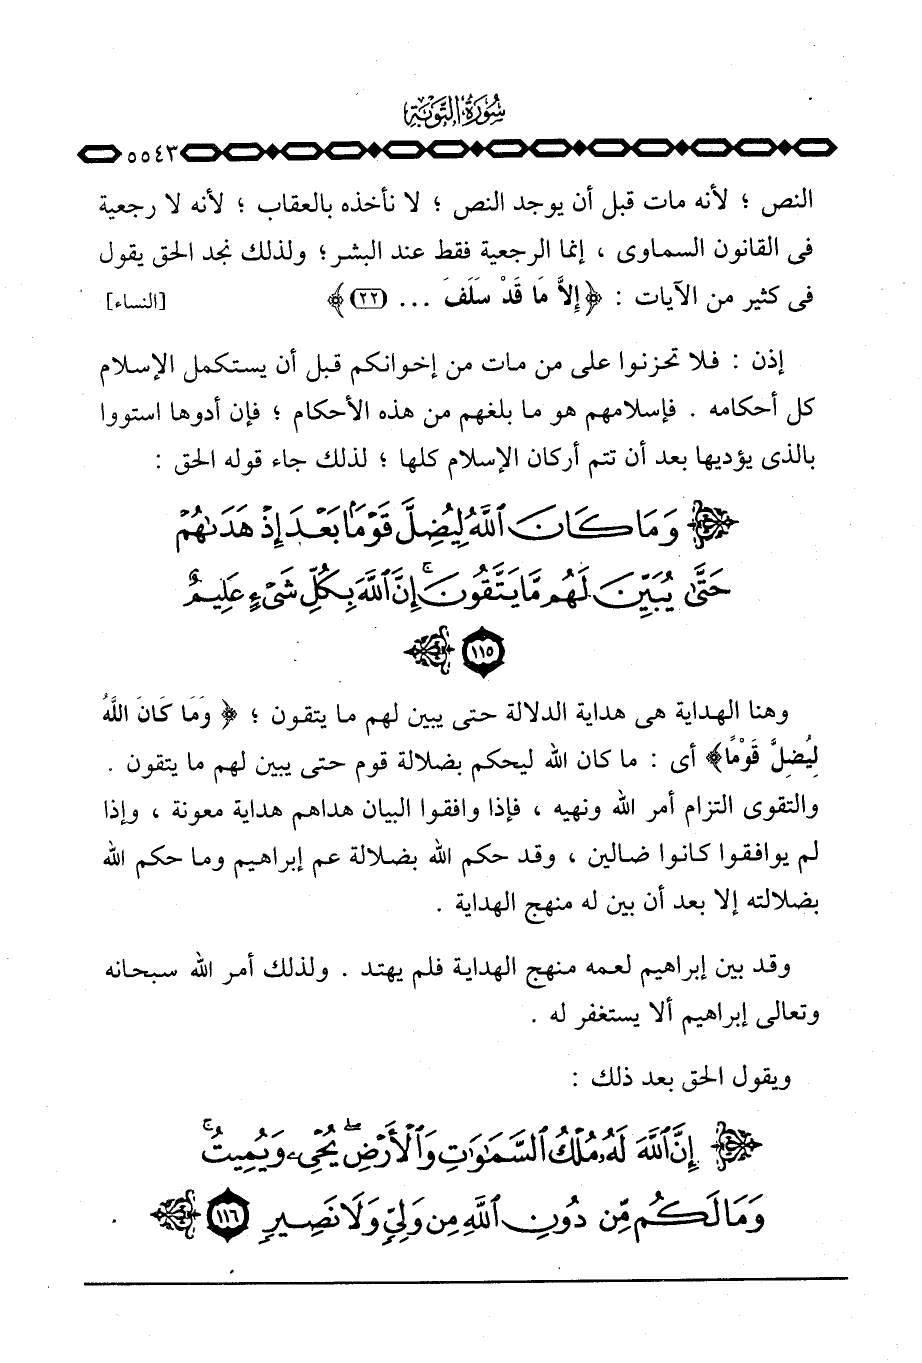 سُورَةُ التَّوْبَةِ
٥٥٤٣
النص ؛ لأنه مات قبل أن يوجد النص ؛ لا نأخذه بالعقاب ؛ لأنه لا رجعية
فى القانون السماوى ، إنما الرجعية فقط عند البشر؛ ولذلك نجد الحق يقول
فى كثير من الآيات : ﴿إِلاَّ مَا قَدْ سَلَفَ ... (٢٢)﴾ [النساء]
إذن : فلا تحزنوا على من مات من إخوانكم قبل أن يستكمل الإسلام
كل أحكامه . فإسلامهم هو ما بلغهم من هذه الأحكام ؛ فإن أدوها استووا
بالذى يؤديها بعد أن تتم أركان الإسلام كلها ؛ لذلك جاء قوله الحق :
﴿ وَمَا كَانَ ٱللَّهُ لِيُضِلَّ قَوْمًۢا بَعْدَ إِذْ هَدَىٰهُمْ
حَتَّىٰ يُبَيِّنَ لَهُم مَّا يَتَّقُونَۚ إِنَّ ٱللَّهَ بِكُلِّ شَىْءٍ عَلِيمٌ
١١٥ ﴾
وهنا الهداية هى هداية الدلالة حتى يبين لهم ما يتقون ؛ ﴿ وَمَا كَانَ اللَّهُ
لِيُضِلَّ قَوْمًا﴾ أى : ما كان الله ليحكم بضلالة قوم حتى يبين لهم ما يتقون .
والتقوى التزام أمر الله ونهيه ، فإذا وافقوا البيان هداهم هداية معونة ، وإذا
لم يوافقوا كانوا ضالين ، وقد حكم الله بضلالة عم إبراهيم وما حكم الله
بضلالته إلا بعد أن بين له منهج الهداية .
وقد بين إبراهيم لعمه منهج الهداية فلم يهتد . ولذلك أمر الله سبحانه
وتعالى إبراهيم ألا يستغفر له .
ويقول الحق بعد ذلك :
﴿ إِنَّ ٱللَّهَ لَهُۥ مُلْكُ ٱلسَّمَٰوَٰتِ وَٱلْأَرْضِۖ يُحْىِۦ وَيُمِيتُۚ
وَمَا لَكُم مِّن دُونِ ٱللَّهِ مِن وَلِىٍّ وَلَا نَصِيرٍ ١١٦ ﴾